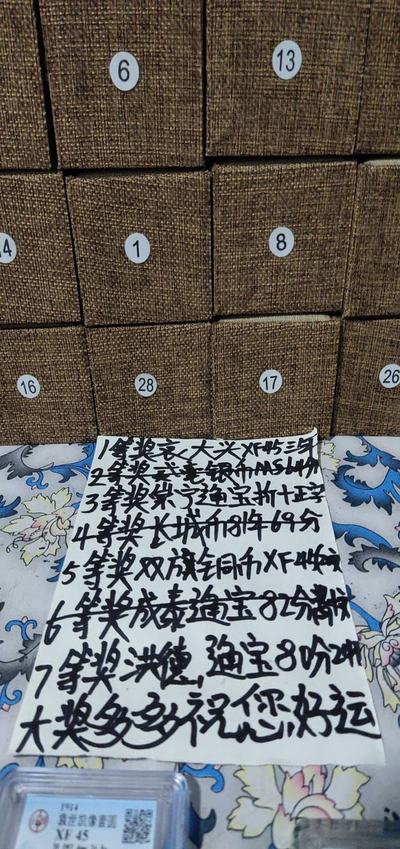 6
13
14
1
8
16
28
17
26
1等奖袁大头XF45三年
2等奖 银币MS64分
3等奖崇宁通宝折十正字
4等奖长城币81年69分
5等奖双旗铜币XF45
6等奖咸泰通宝82分
7等奖洪德通宝80分
大奖多多祝您好运
1914
袁世凯像壹圆
XF 45